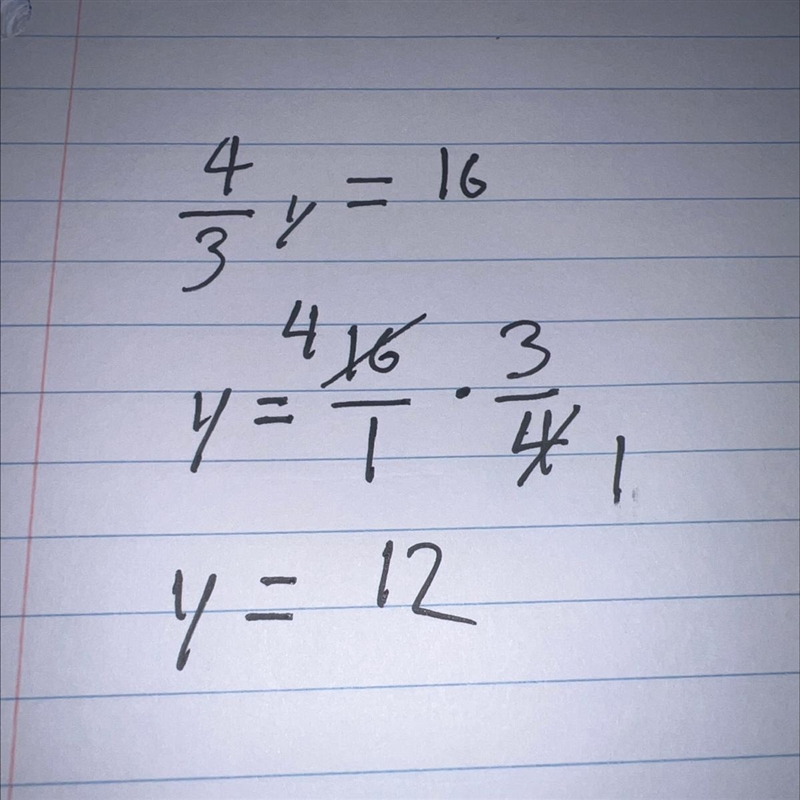 4/3 y = 16
y = 4 16/1 · 3/4 1
y = 12